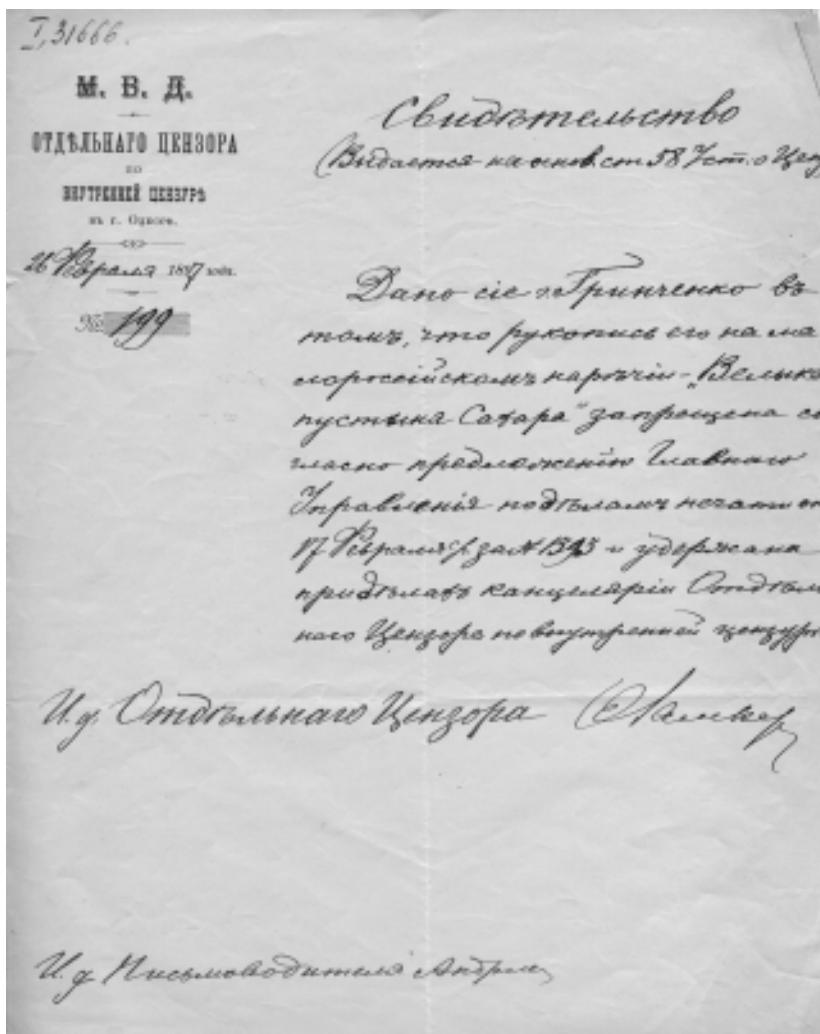 I,31666.
М. В. Д.
ОТДѢЛЬНАГО ЦЕНЗОРА
ПО
ВНУТРЕННЕЙ ЦЕНЗУРѢ
въ г. Одессѣ.
26 Февраля 1897 года.
№ 199
Свидѣтельство
(Выдается на основ. ст 58 Уст. о Ценз
Дано сіе г. Гринченко въ
томъ, что рукопись его на ма
лороссійскомъ нарѣчіи - „Велыка
пустыня Сахара" запрещена со
гласно предложенію Главнаго
Управленія по дѣламъ печати от
17 Февраля с/г. за № 1393 и удержана
при дѣлахъ канцеляріи Отдѣль
наго Цензора по внутренней цензурѣ
И. д. Отдѣльнаго Цензора
И. д. Письмоводителя